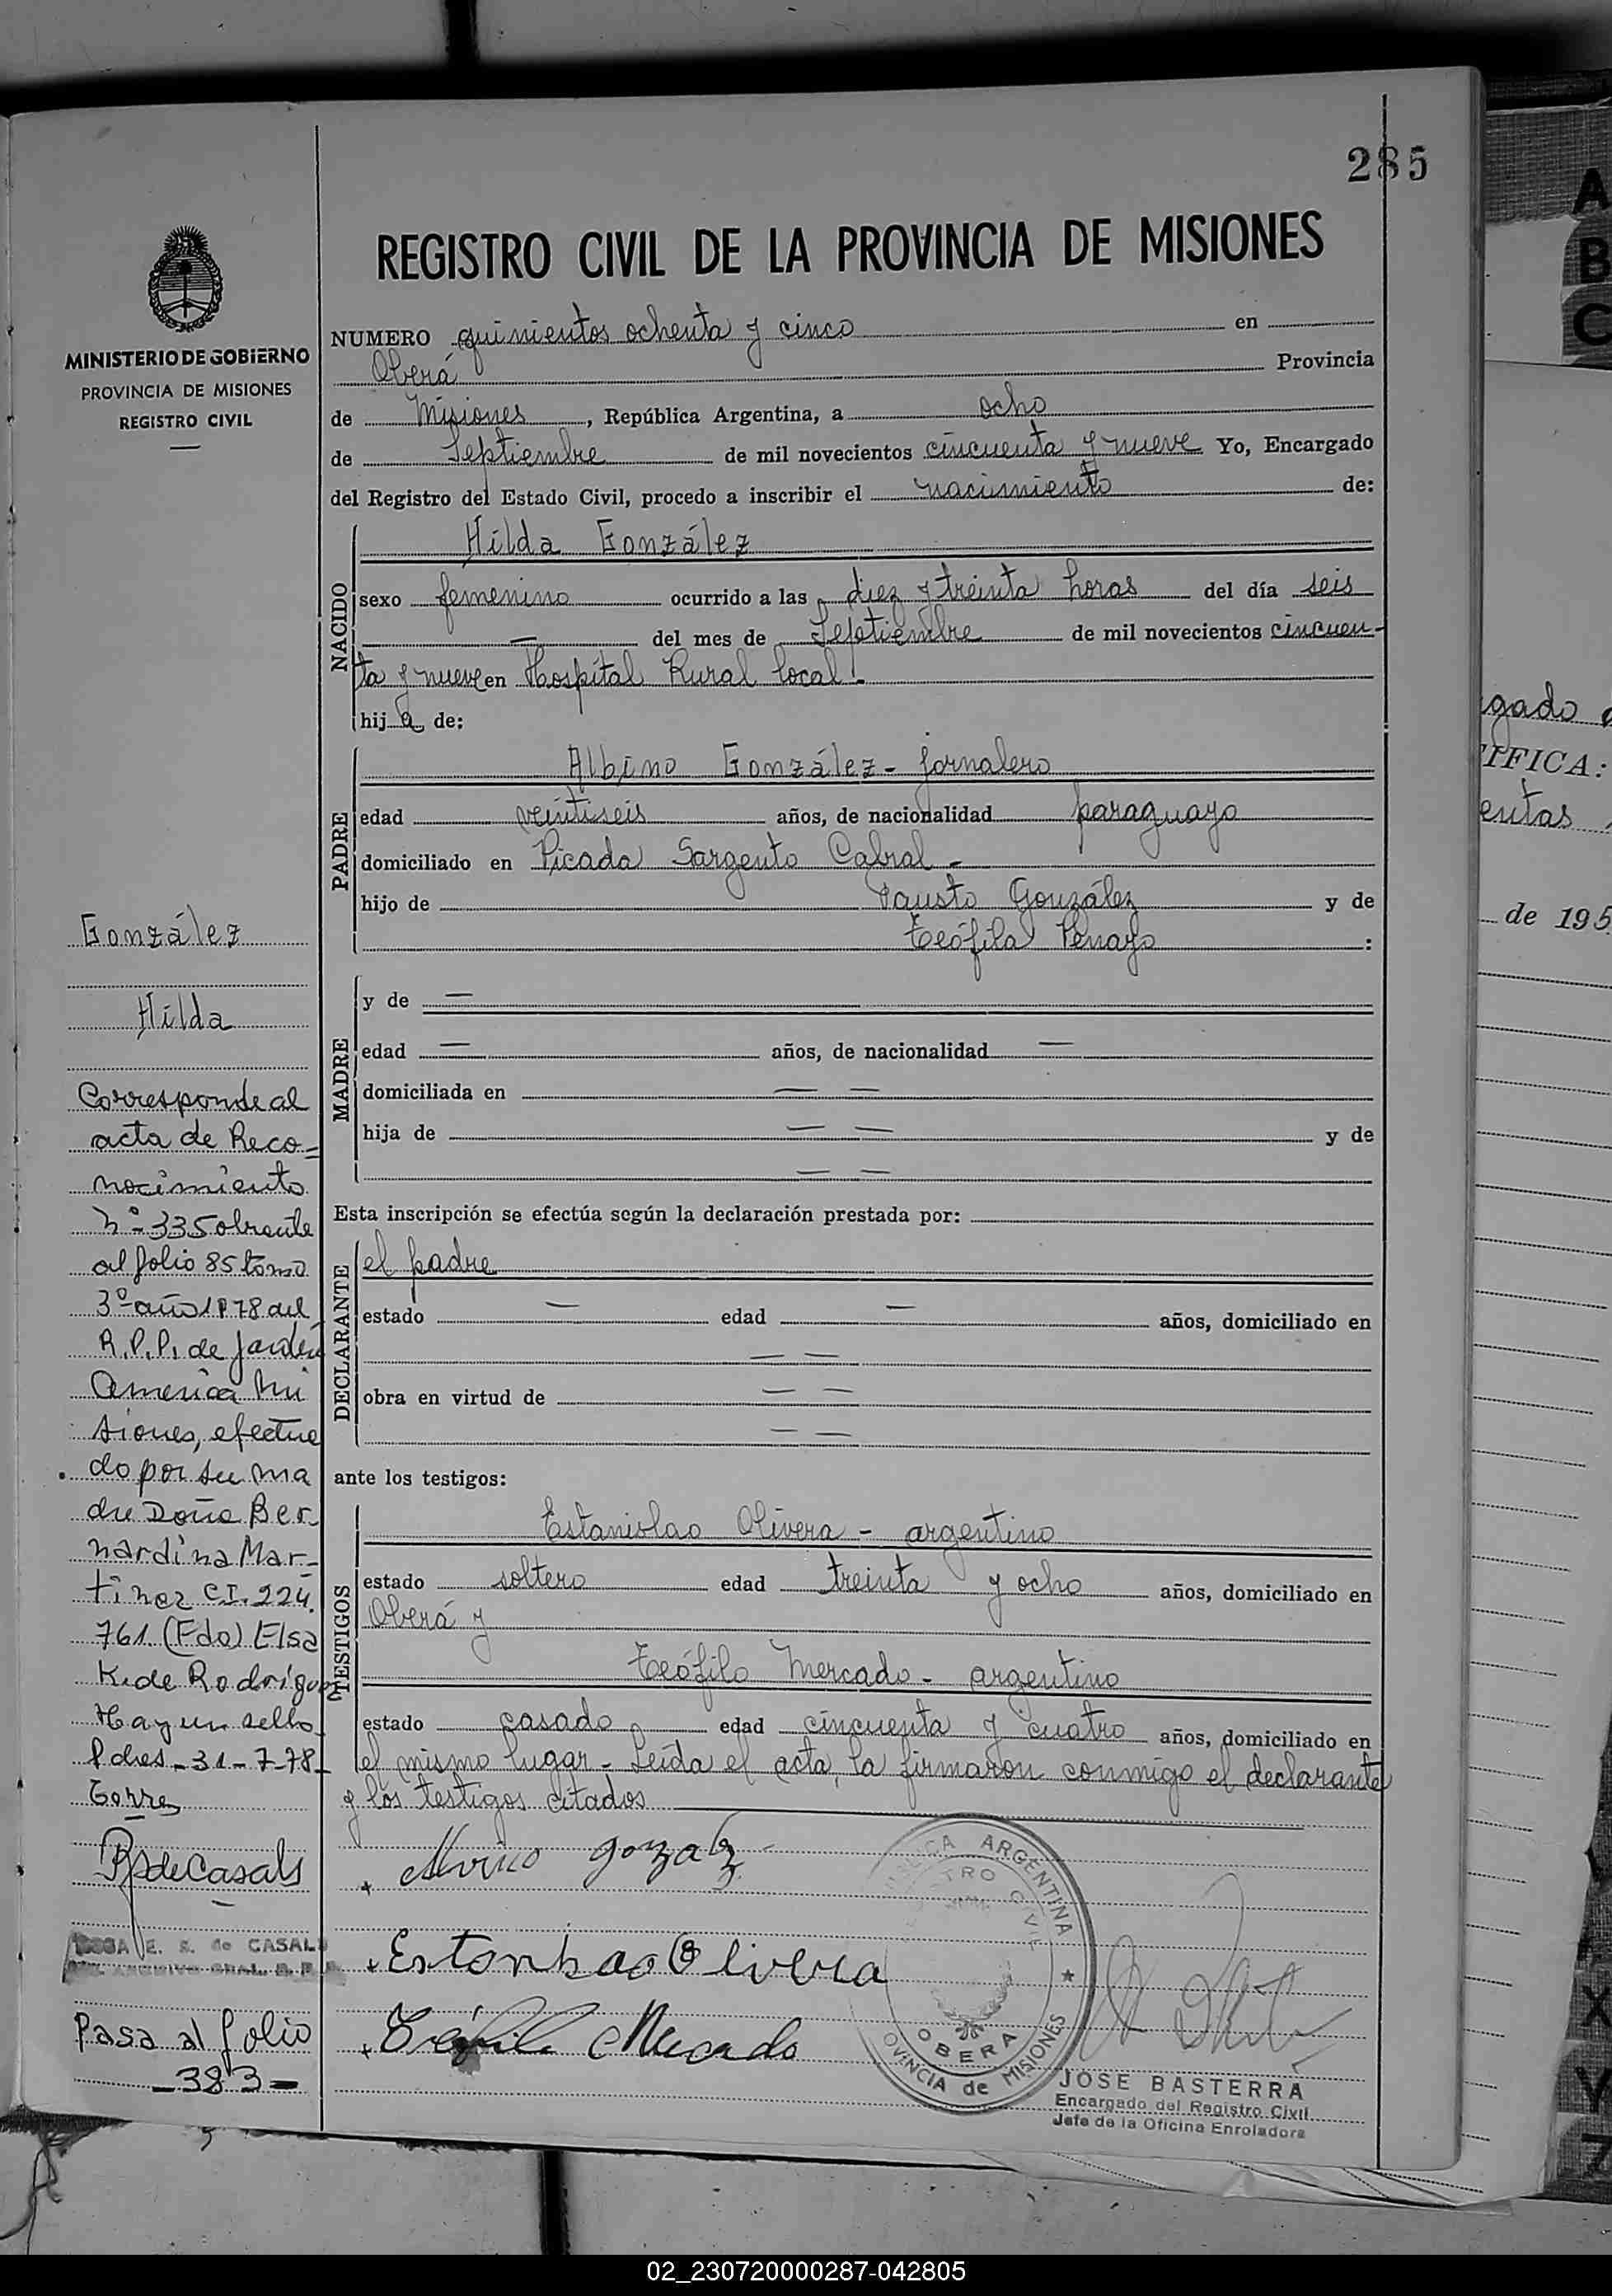 285
REGISTRO CIVIL DE LA PROVINCIA DE MISIONES
MINISTERIO DE GOBIERNO
PROVINCIA DE MISIONES
REGISTRO CIVIL
NUMERO quinientos ochenta y cinco en
Oberá Provincia
de Misiones, República Argentina, a ocho
de Septiembre de mil novecientos cincuenta y nueve Yo, Encargado
del Registro del Estado Civil, procedo a inscribir el nacimiento de:
NACIDO
Hilda González
sexo femenino ocurrido a las diez y treinta horas del día seis
— del mes de Septiembre de mil novecientos cincuen-
ta y nueve en Hospital Rural local.-
hija de:
PADRE
Albino González - jornalero
edad veintiseis años, de nacionalidad paraguayo
domiciliado en Picada Sargento Cabral -
hijo de Fausto González y de
Teófila Penayo :
MADRE
y de —
edad — años, de nacionalidad —
domiciliada en — —
hija de — — y de
— —
Esta inscripción se efectúa según la declaración prestada por:
DECLARANTE
el padre
estado — edad — años, domiciliado en
— —
obra en virtud de — —
— —
ante los testigos:
TESTIGOS
Estanislao Olivera - argentino
estado soltero edad treinta y ocho años, domiciliado en
Oberá y
Teófilo Mercado - argentino
estado casado edad cincuenta y cuatro años, domiciliado en
el mismo lugar - Leída el acta, la firmaron conmigo el declarante
y los testigos citados
González
Hilda
Corresponde al
acta de Reco=
nocimiento
Nº-335 obrante
al folio 85 tomo
3º año 1978 del
R.P.P. de Jardín
America Mi
siones, efectua
do por su ma
dre Doña Ber-
nardina Mar-
tinez C.I. 224.
761. (Fdo) Elsa
K. de Rodríguez
Hay un sello
Pdas - 31-7-78
Torres
de Casals
E. S. de CASALS
Pasa al folio
-383-
gonzalz
Estanislao Olivera
Teófilo Mercado
REPUBLICA ARGENTINA
REGISTRO CIVIL
OBERA
PROVINCIA de MISIONES
JOSE BASTERRA
Encargado del Registro Civil
Jefe de la Oficina Enroladora
A
B
C
gado
IFICA:
entas
de 195
X
Y
Z
02_230720000287-042805